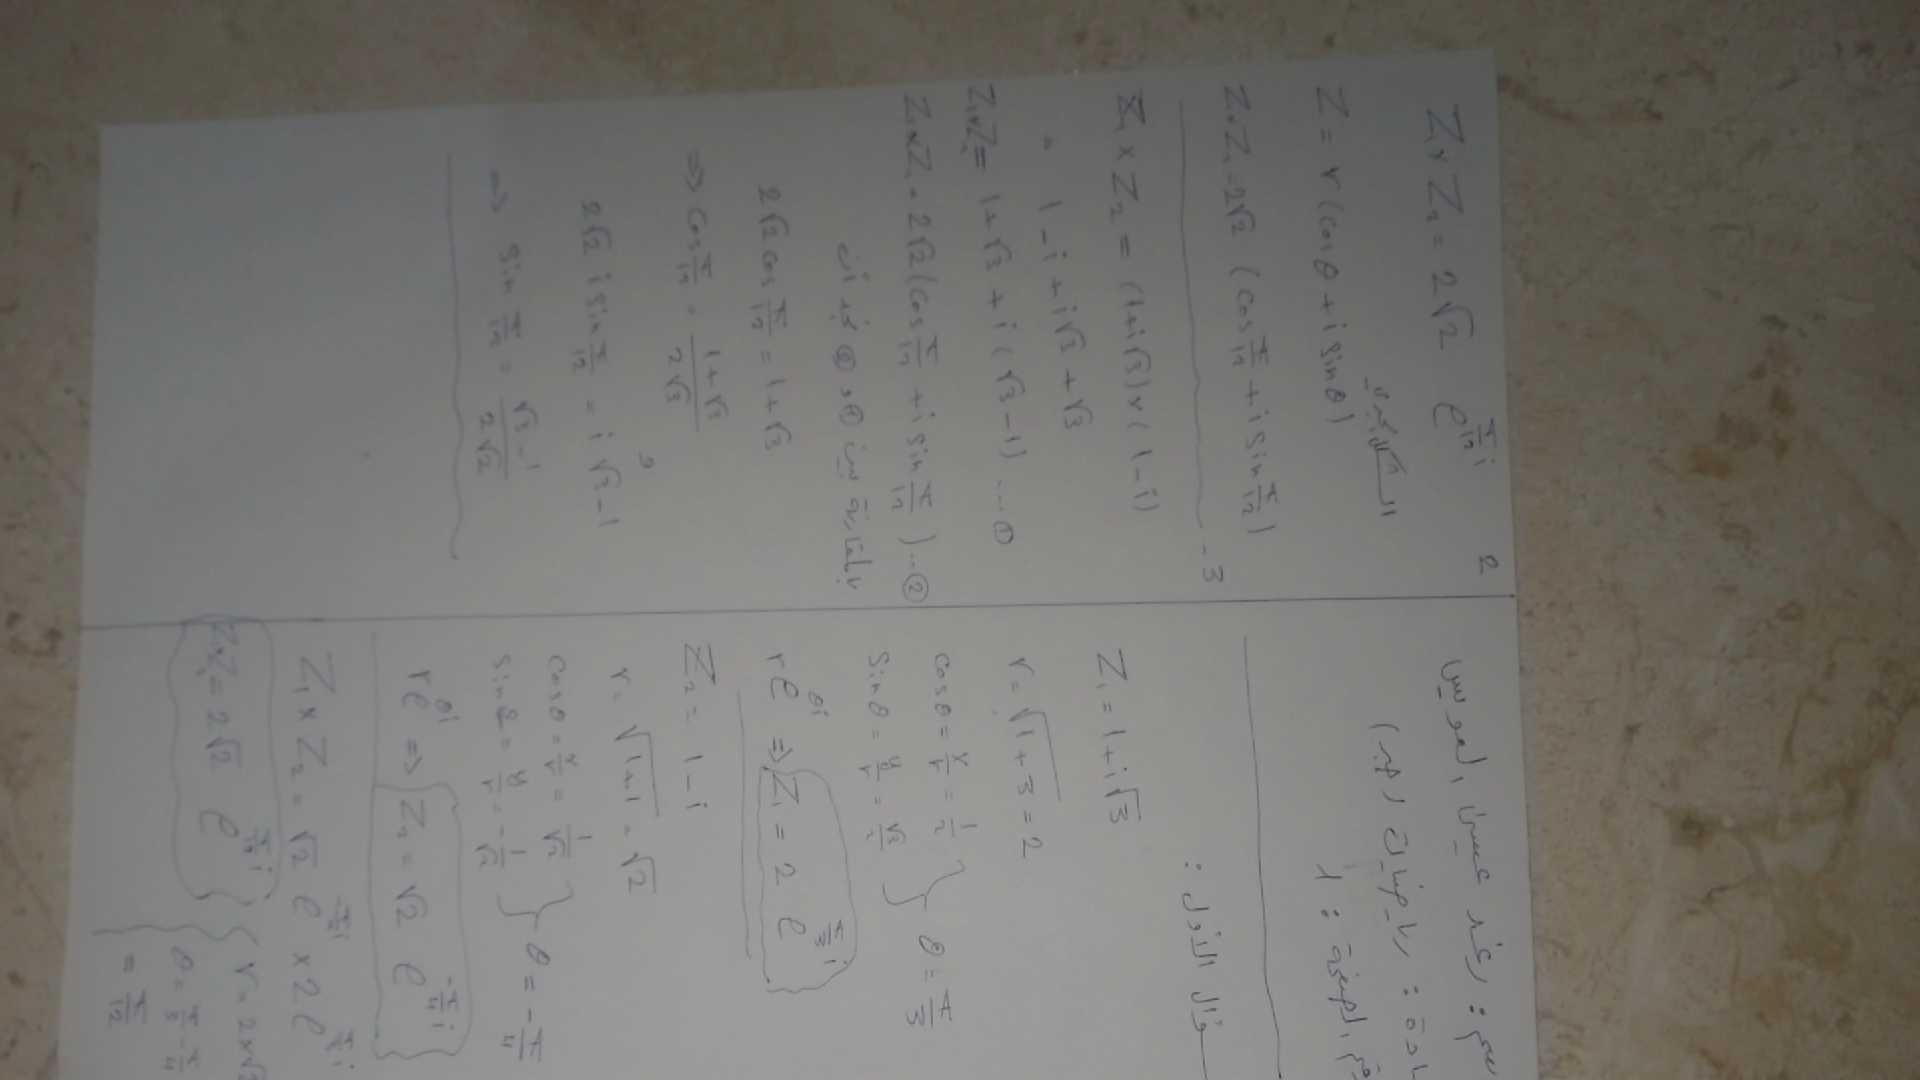 سم : رغد عيسى العويس
ادة : رياضيات (جبر)
قم الصفحة : 1
سؤال الأول :
Z₁ = 1 + i√3
r = √1+3 = 2
cos θ = x/r = 1/2
sin θ = y/r = √3/2 } θ = π/3
r e^θi ⇒ Z₁ = 2 e^π/3 i
Z₂ = 1 - i
r = √1+1 = √2
cos θ = x/r = 1/√2
sin θ = y/r = -1/√2 } θ = -π/4
r e^θi ⇒ Z₂ = √2 e^-π/4 i
Z₁ × Z₂ = √2 e^-π/4 i × 2 e^π/3 i
Z₁×Z₂ = 2√2 e^π/12 i { r = 2×√2
θ = π/3 - π/4
= π/12
2
Z₁ × Z₂ = 2√2 e^π/12 i
Z = r (cos θ + i sin θ)
Z₁×Z₂ = 2√2 (cos π/12 + i sin π/12)
-3
Z₁ × Z₂ = (1+i√3) × (1-i)
= 1 - i + i√3 + √3
Z₁×Z₂ = 1+√3 + i(√3-1) ... ①
Z₁×Z₂ = 2√2 (cos π/12 + i sin π/12) ... ②
بالمقارنة بين ① و ② نجد أن
2√2 cos π/12 = 1+√3
⇒ cos π/12 = 1+√3 / 2√3
و
2√2 i sin π/12 = i √3-1
⇒ sin π/12 = √3-1 / 2√2